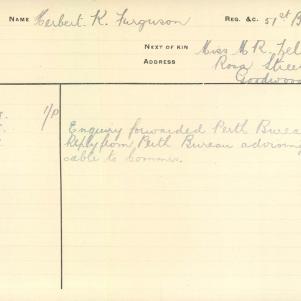 NAME Herbert K. Furguson REG. &C. 51st B
NEXT OF KIN Miss M R. Fel
ADDRESS Rosa Stree
Goodwood
1/P
Enquiry forwarded Perth Burea
Reply from Perth Bureau advising
cable to